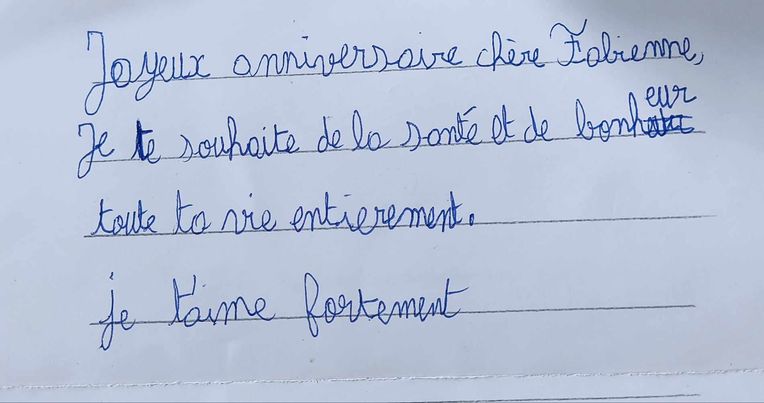 Joyeux anniversaire chère Fabienne,
Je te souhaite de la santé et de bonheur
toute ta vie entierement.
je t'aime fortement